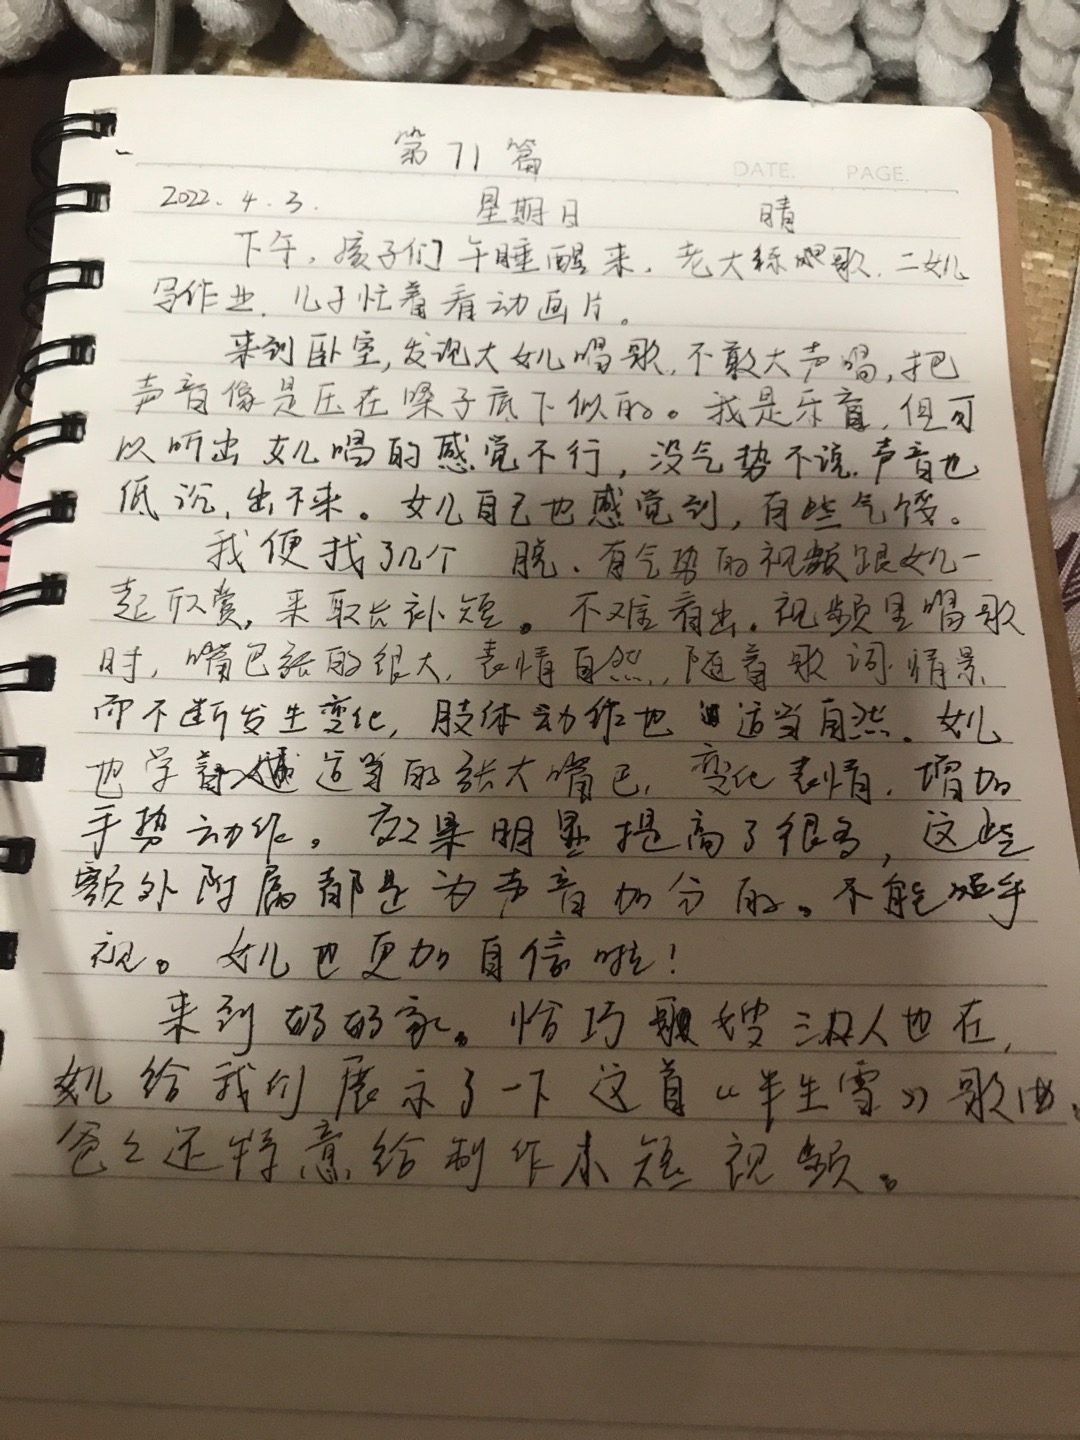 第71篇
DATE. PAGE.
2022.4.3. 星期日 晴
下午,孩子们午睡醒来,老大练唱歌,二女儿
写作业,儿子忙着看动画片。
来到卧室,发现大女儿唱歌,不敢大声唱,把
声音像是压在嗓子底下似的。我是乐盲,但可
以听出女儿唱的感觉不行,没气势不说,声音也
低沉,出不来。女儿自己也感觉到,有些气馁。
我便找了几个 脆、有气势的视频跟女儿一
起欣赏,来取长补短。不难看出,视频里唱歌
时,嘴巴张的很大,表情自然,随着歌词情景
而不断发生变化,肢体动作也适当自然。女儿
也学着 适当的张大嘴巴,变化表情,增加
手势动作。效果明显提高了很多,这些
额外附属都是为声音加分的。不能忽乎
视。女儿也更加自信啦!
来到奶奶家。恰巧 嫂三口人也在,
女儿给我们展示了一下这首“半生雪”歌曲,
爸々还特意给制作本短视频。